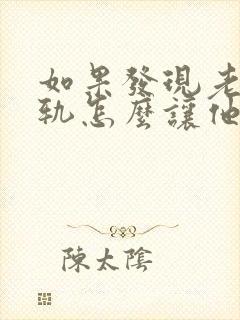 如果發現老
軌怎麼讓他
陳太陰